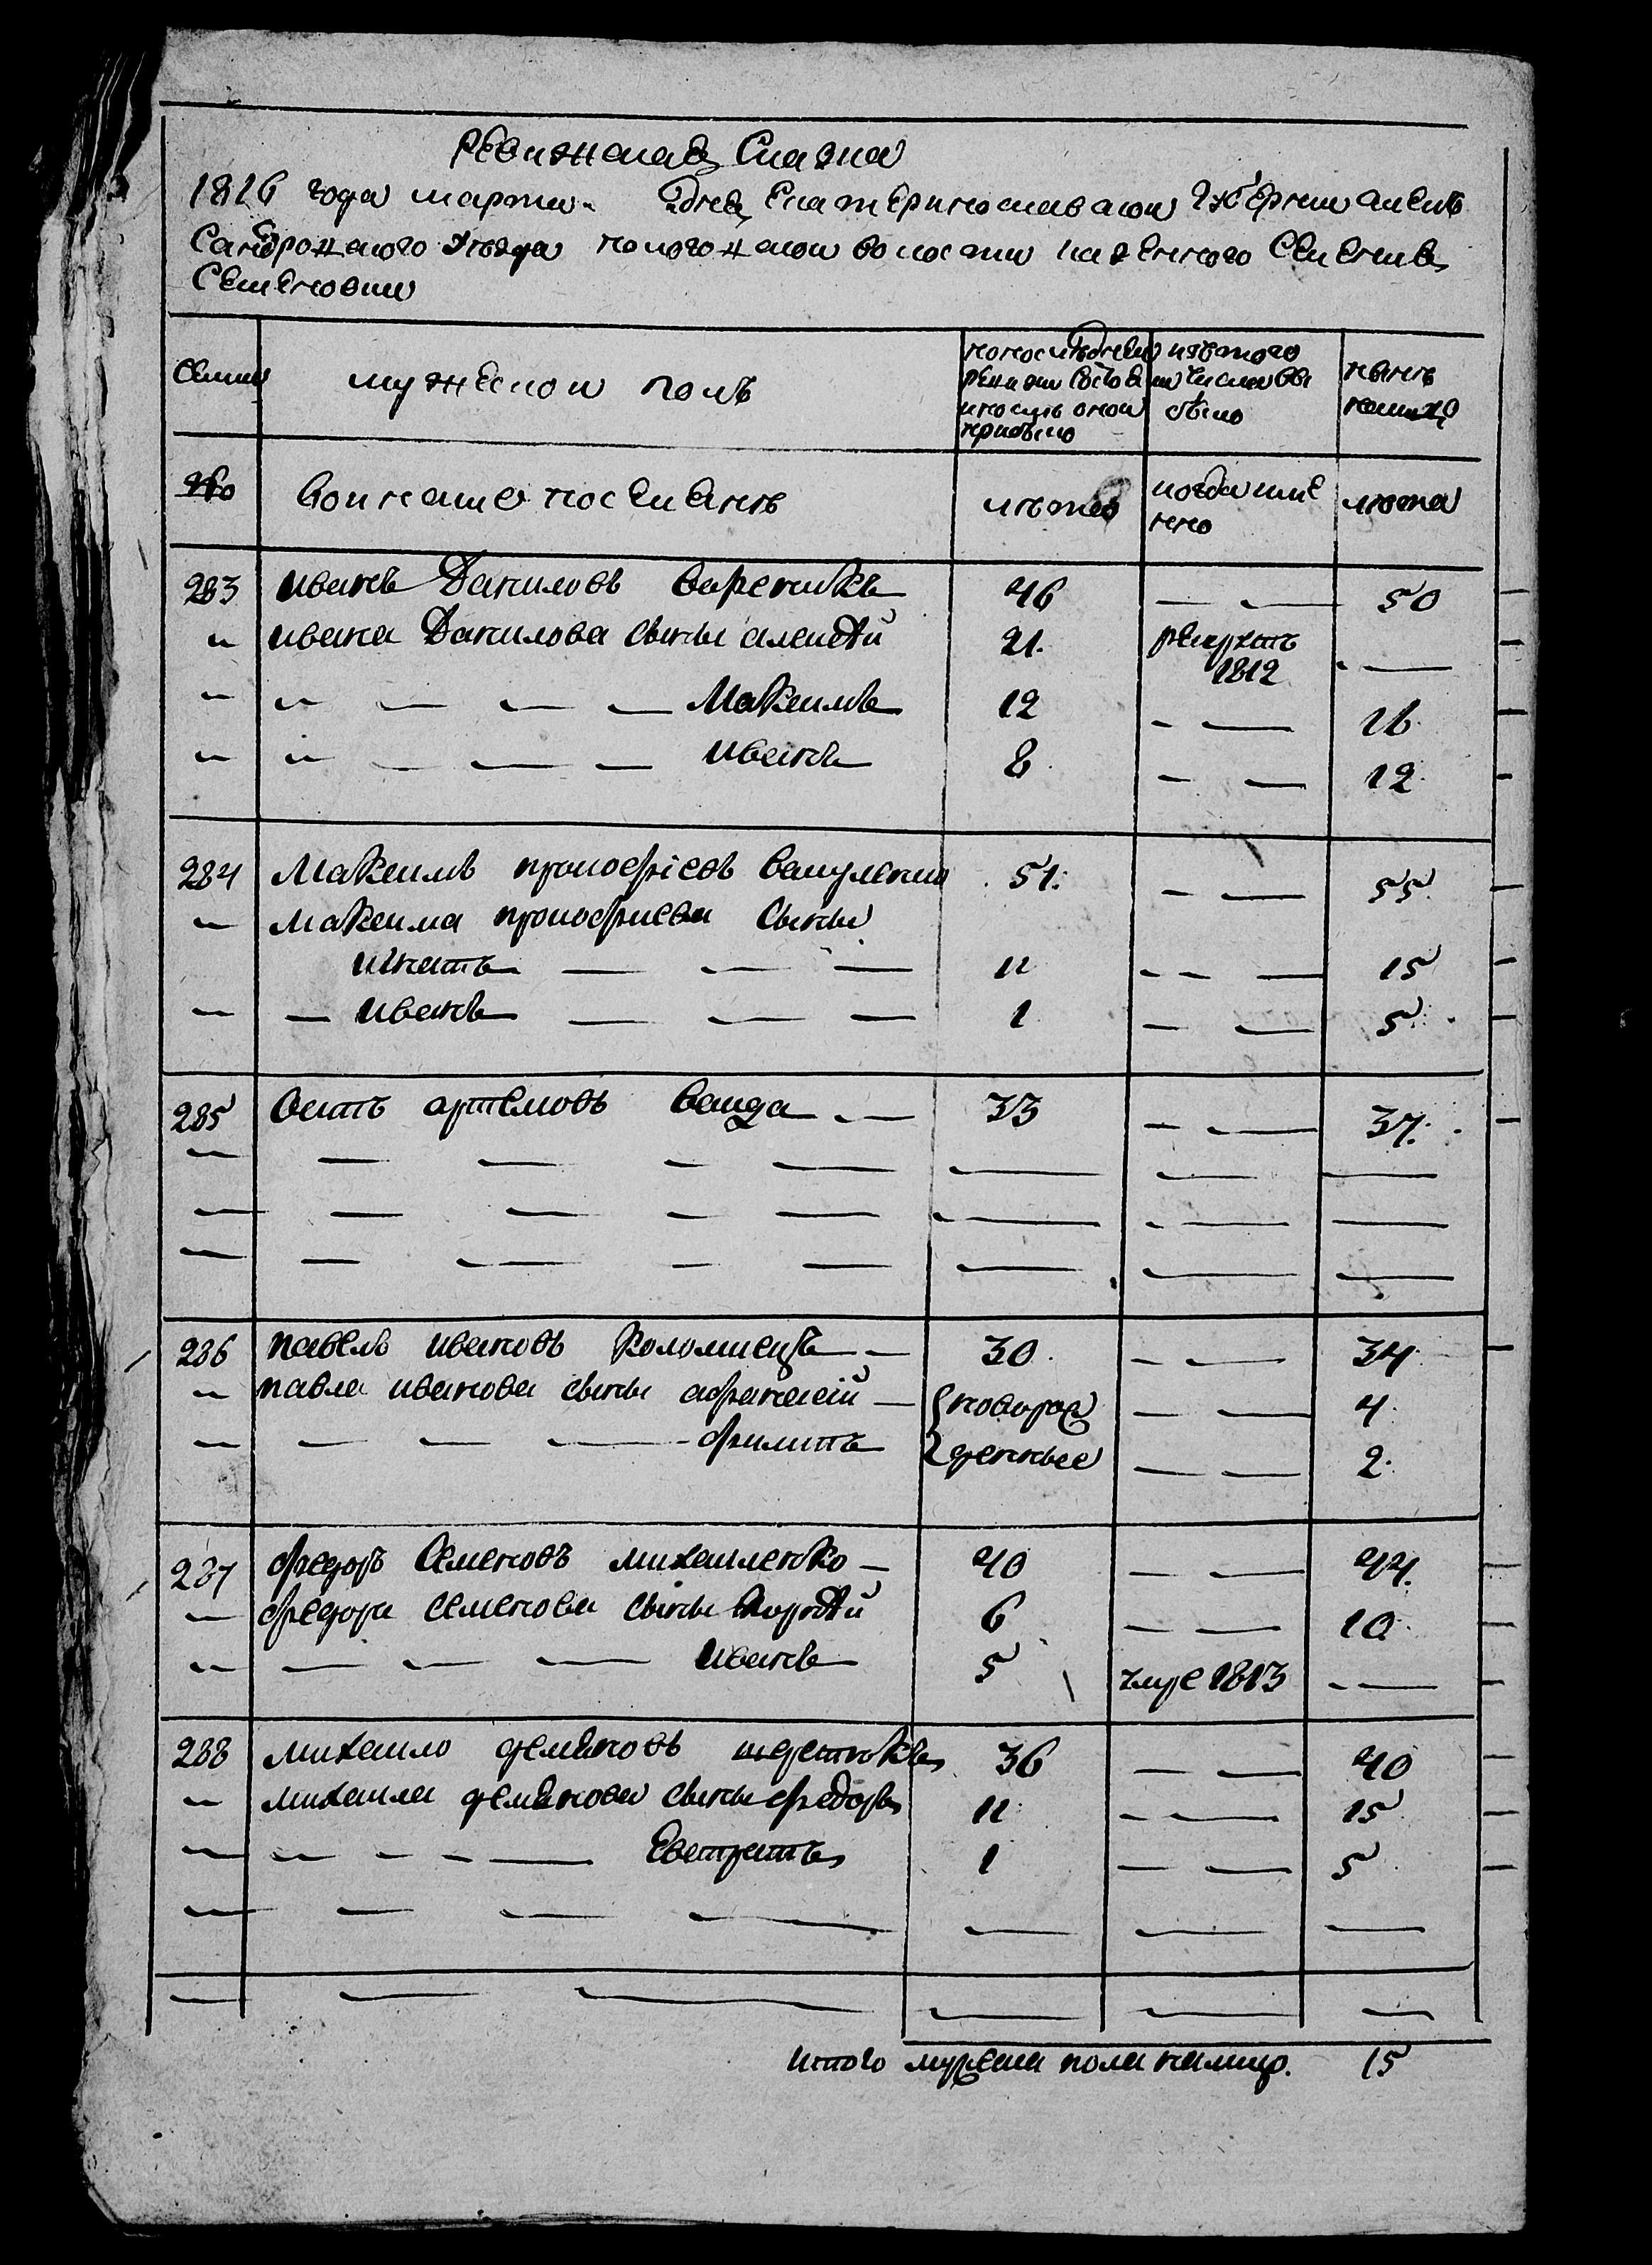 Ревижская Сказка
1816 года марта дня Екатеринославской Губернии Алек
Сандровского Уезда пологовской волости казенного Селения
Семеновки
Семьи
мужеской полъ
по последней ревизии состояло и после оной прибыло
изъ того числа выбыло
нынѣ налицо
№
воинские поселяне
лѣта
когда имянно
лѣта
283 иванъ Даниловъ вареникъ 46 — — 50
" ивана Данилова сыны алексѣй 21. рекрутъ 1812 —
" " — — — Максимъ 12 — — 16
" " — — — иванъ 8 — — 12
284 Максимъ прокофіевъ вакуленко 51. — — 55
" максима прокофиева сыны
игнатъ — — — 11 — — 15
" — иванъ — — — 1 — — 5
285 осипъ артемовъ ваида — 33 — — 37
286 павелъ ивановъ коломиецъ — 30 — — 34
" павла иванова сыны афанасій — новорож — — 4
" — — — филипъ денные — — 2
287 федоръ Семеновъ михаиленко — 40 — — 44
" федора семенова сыны андрѣй 6 — — 10
" — — — иванъ 5 умре 1813 —
288 михаило демяновъ 36 — — 40
" михаила демянова сыны федоръ 11 — — 15
" " — — — Евстратъ 1 — — 5
итого мужеска пола налицо. 15